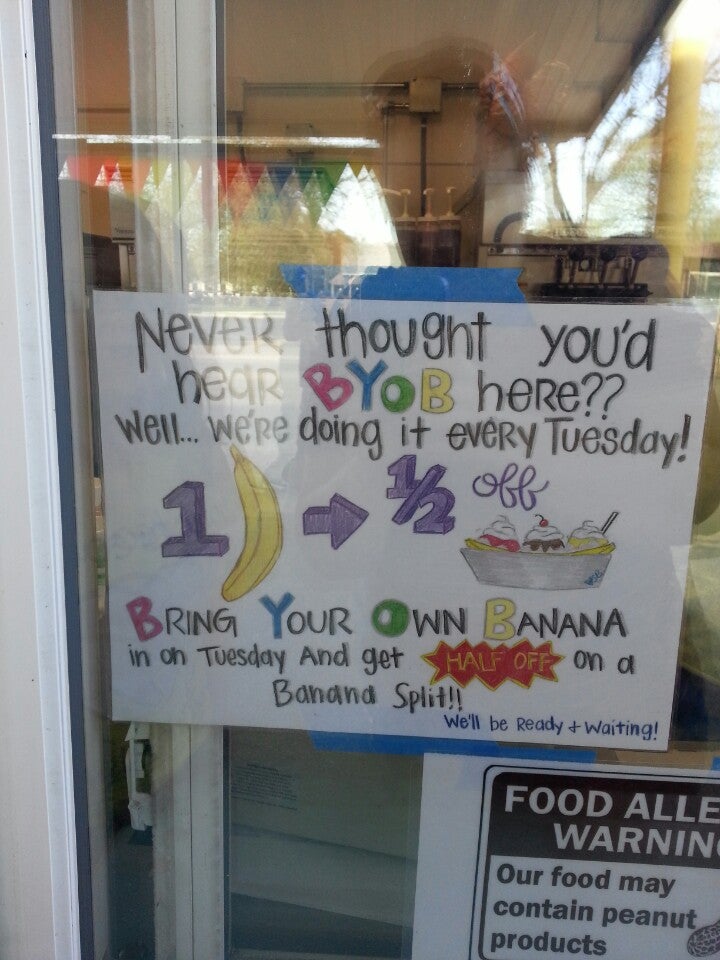 Never thought you'd
hear BYOB here??
Well... we're doing it every Tuesday!
1 → 1/2 off
BRING YOUR OWN BANANA
in on Tuesday And get HALF OFF on a
Banana Split!!
We'll be Ready + Waiting!
FOOD ALLE
WARNIN
Our food may
contain peanut
products